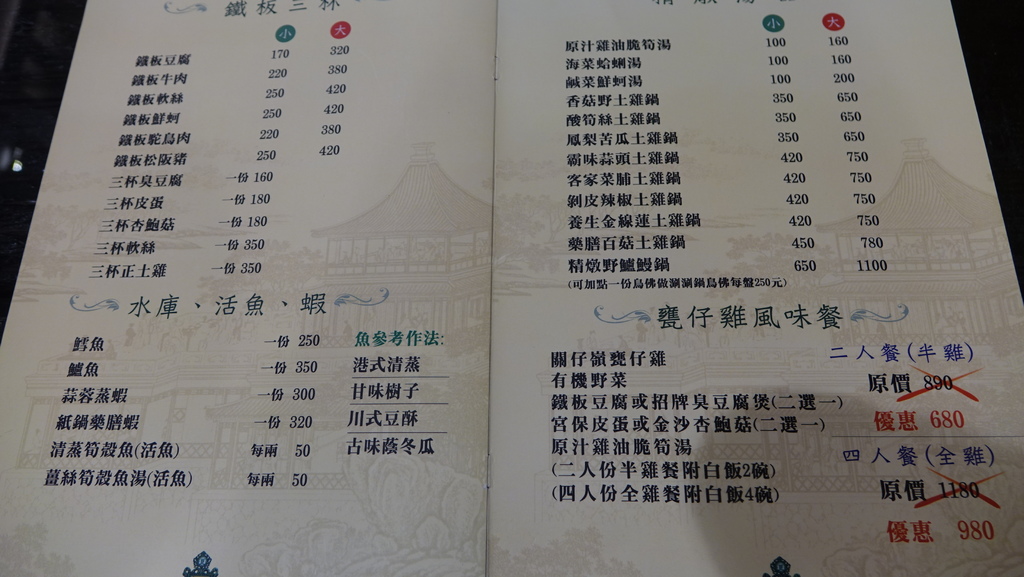 鐵板三杯
小 大
鐵板豆腐 170 320
鐵板牛肉 220 380
鐵板軟絲 250 420
鐵板鮮蚵 250 420
鐵板鴕鳥肉 220 380
鐵板松阪豬 250 420
三杯臭豆腐 一份 160
三杯皮蛋 一份 180
三杯杏鮑菇 一份 180
三杯軟絲 一份 350
三杯正土雞 一份 350
水庫、活魚、蝦
鱈魚 一份 250
鱸魚 一份 350
蒜蓉蒸蝦 一份 300
紙鍋藥膳蝦 一份 320
清蒸筍殼魚(活魚) 每兩 50
薑絲筍殼魚湯(活魚) 每兩 50
魚參考作法:
港式清蒸
甘味樹子
川式豆酥
古味蔭冬瓜
小 大
原汁雞油脆筍湯 100 160
海菜蛤蜊湯 100 160
鹹菜鮮蚵湯 100 200
香菇野土雞鍋 350 650
酸筍絲土雞鍋 350 650
鳳梨苦瓜土雞鍋 350 650
霸味蒜頭土雞鍋 420 750
客家菜脯土雞鍋 420 750
剝皮辣椒土雞鍋 420 750
養生金線蓮土雞鍋 420 750
藥膳百菇土雞鍋 450 780
精燉野鱸鰻鍋 650 1100
(可加點一份烏佛做涮涮鍋烏佛每盤250元)
甕仔雞風味餐
關仔嶺甕仔雞
有機野菜
鐵板豆腐或招牌臭豆腐煲(二選一)
宮保皮蛋或金沙杏鮑菇(二選一)
原汁雞油脆筍湯
(二人份半雞餐附白飯2碗)
(四人份全雞餐附白飯4碗)
二人餐(半雞)
原價 890
優惠 680
四人餐(全雞)
原價 1180
優惠 980